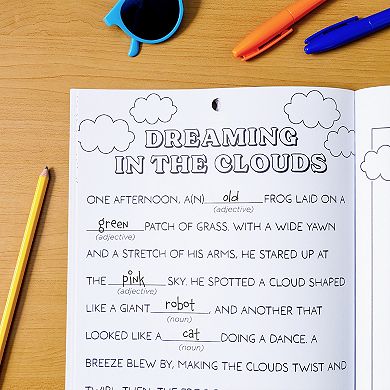 DREAMING
IN THE CLOUDS
ONE AFTERNOON, A(N) old FROG LAID ON A
(adjective)
green PATCH OF GRASS. WITH A WIDE YAWN
(adjective)
AND A STRETCH OF HIS ARMS, HE STARED UP AT
THE pink SKY. HE SPOTTED A CLOUD SHAPED
(adjective)
LIKE A GIANT robot, AND ANOTHER THAT
(noun)
LOOKED LIKE A cat DOING A DANCE. A
(noun)
BREEZE BLEW BY, MAKING THE CLOUDS TWIST AND